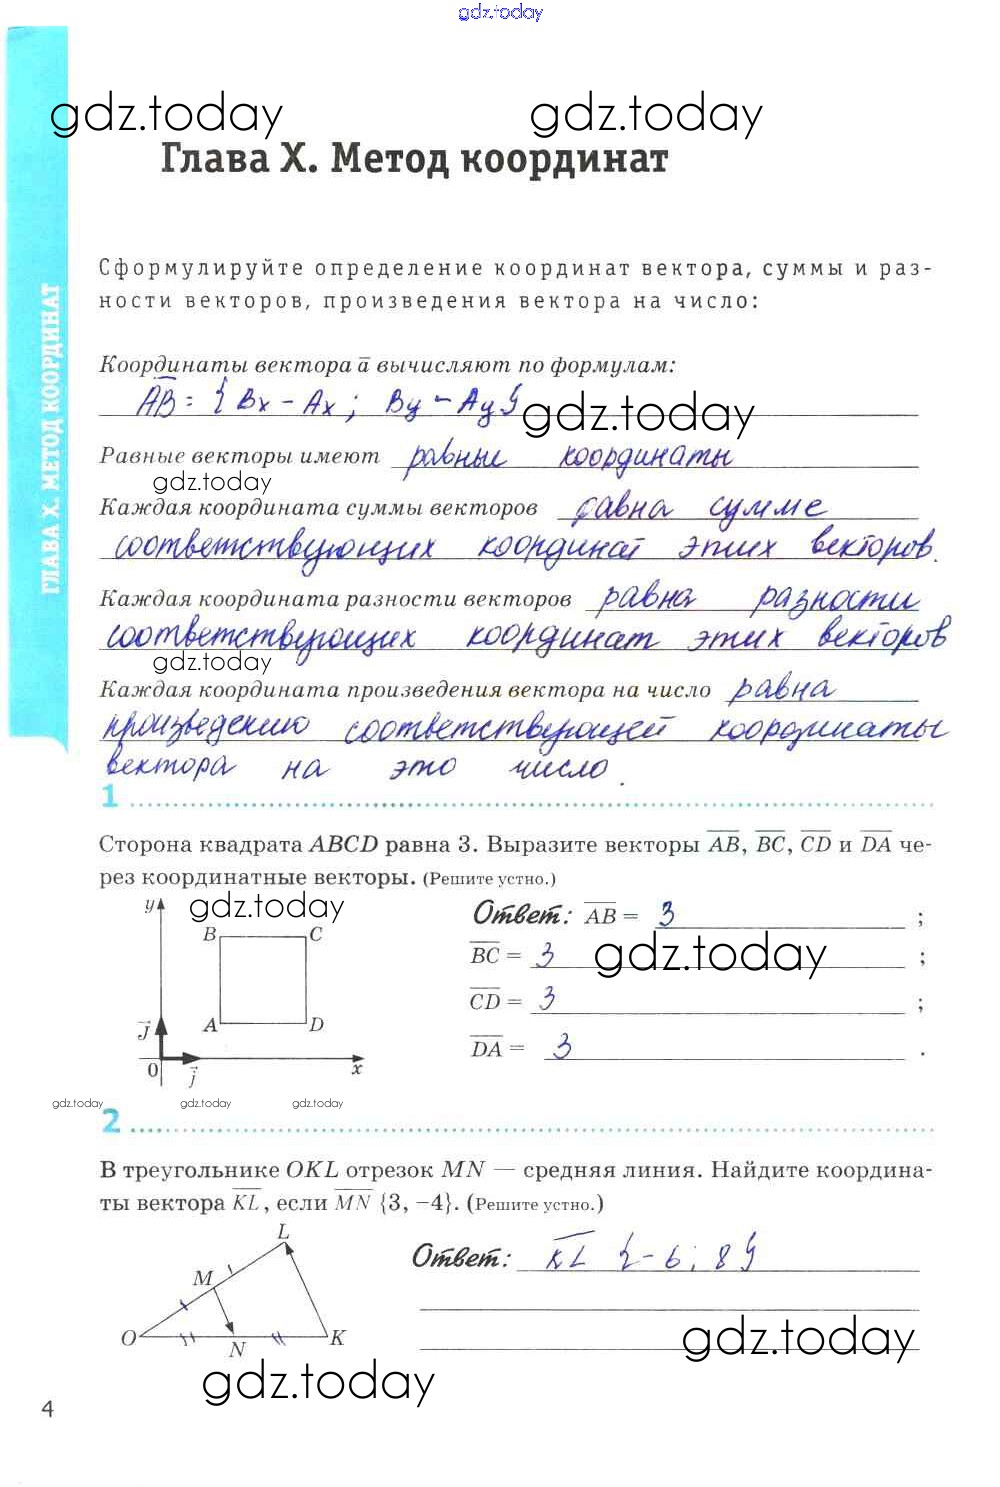 gdz.today
gdz.today gdz.today
Глава X. Метод координат
ГЛАВА X. МЕТОД КООРДИНАТ
Сформулируйте определение координат вектора, суммы и раз-
ности векторов, произведения вектора на число:
Координаты вектора a̅ вычисляют по формулам:
A̅B̅ = { Bx – Ax ; By – Ay }
gdz.today
Равные векторы имеют равные координаты
gdz.today
Каждая координата суммы векторов равна сумме
соответствующих координат этих векторов.
Каждая координата разности векторов равна разности
соответствующих координат этих векторов
gdz.today
Каждая координата произведения вектора на число равна
произведению соответствующей координаты
вектора на это число.
1
Сторона квадрата ABCD равна 3. Выразите векторы A̅B̅, B̅C̅, C̅D̅ и D̅A̅ че-
рез координатные векторы. (Решите устно.)
y
gdz.today
B C
A D
J⃗
0 j⃗ x
Ответ: A̅B̅ = 3 ;
B̅C̅ = 3 ;
gdz.today
C̅D̅ = 3 ;
D̅A̅ = 3 .
gdz.today gdz.today gdz.today
2
В треугольнике OKL отрезок MN — средняя линия. Найдите координа-
ты вектора K̅L̅, если M̅N̅ {3, –4}. (Решите устно.)
L
M
O N K
Ответ: K̅L̅ {–6; 8}
gdz.today
gdz.today
4